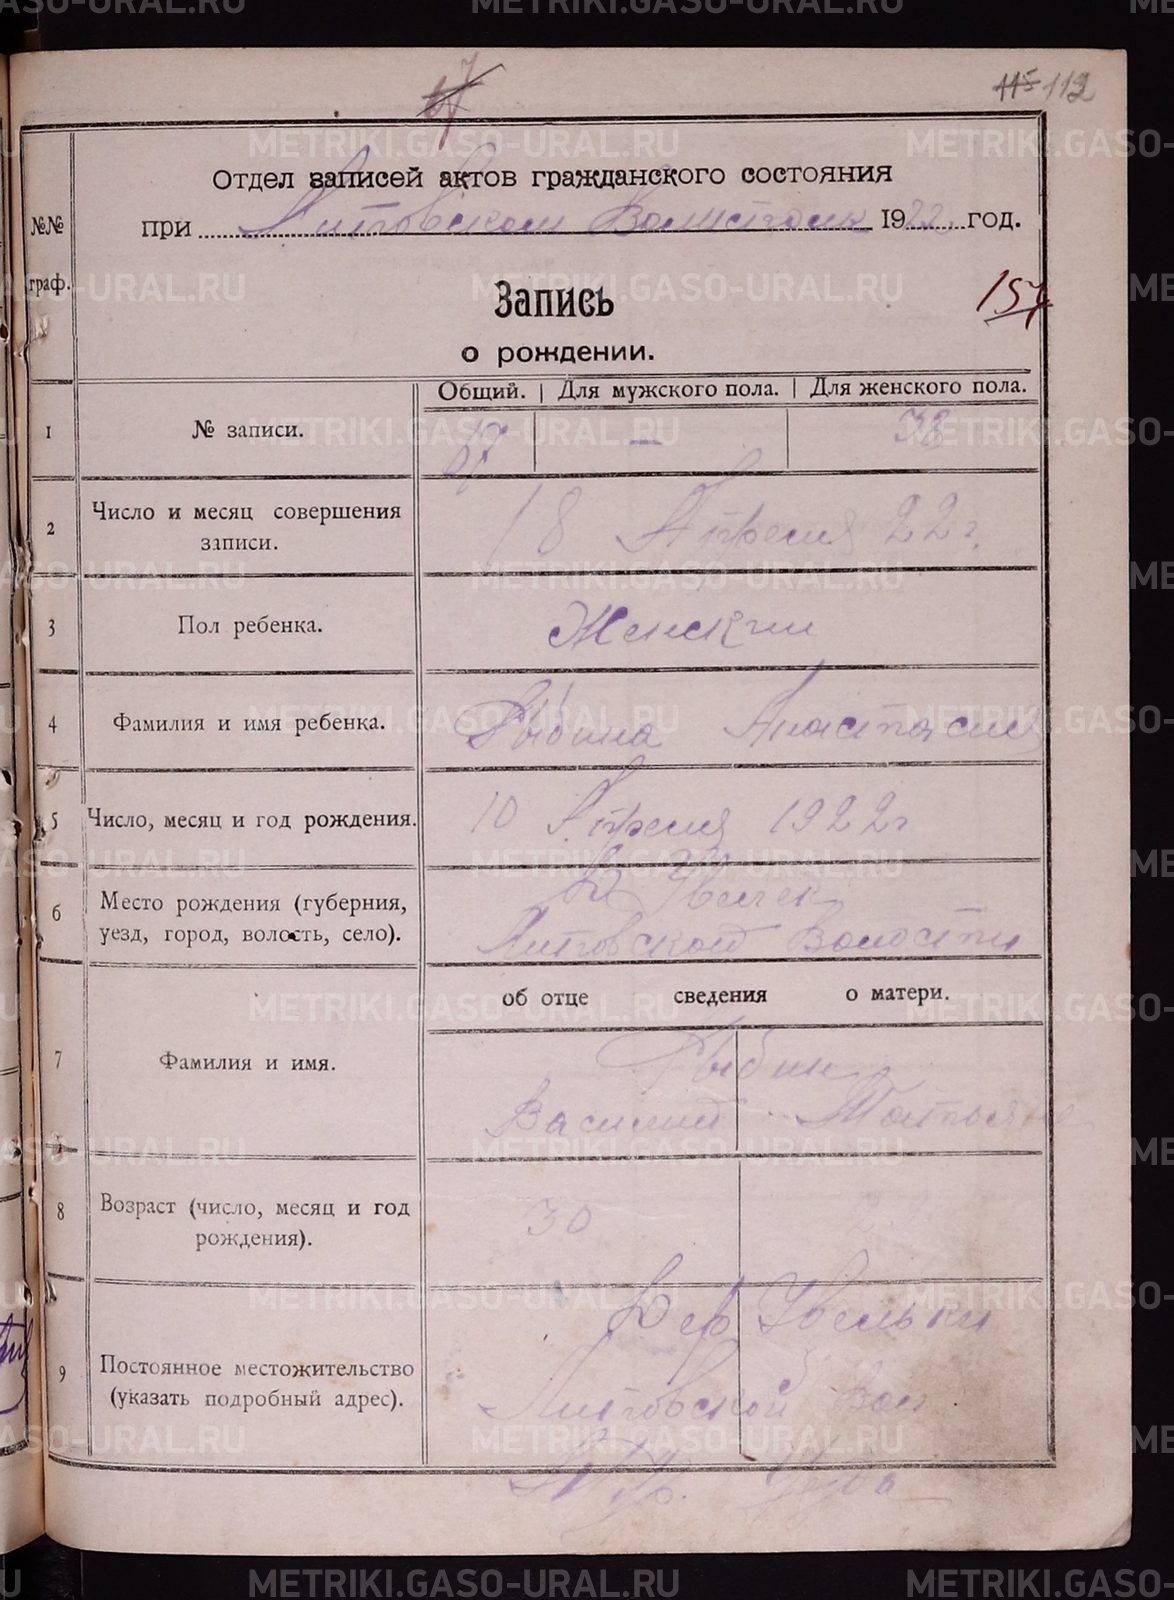 115 112
Отдел записей актов гражданского состояния
при Липовском Волисполк 1922 год.
№№
граф.
157
Запись
о рождении.
Общий. | Для мужского пола. | Для женского пола.
1 № записи. 67 — 38
2 Число и месяц совершения записи. 18 Апреля 22 г.
3 Пол ребенка. Женский
4 Фамилия и имя ребенка. Рыбина Анастасия
5 Число, месяц и год рождения. 10 Апреля 1922 г
6 Место рождения (губерния,
уезд, город, волость, село). Липовской Волости
об отце сведения о матери.
7 Фамилия и имя. Рыбин
Василий Татьяна
8 Возраст (число, месяц и год
рождения). 30
9 Постоянное местожительство
(указать подробный адрес). Дер.
Липовской вол
METRIKI.GASO-URAL.RU